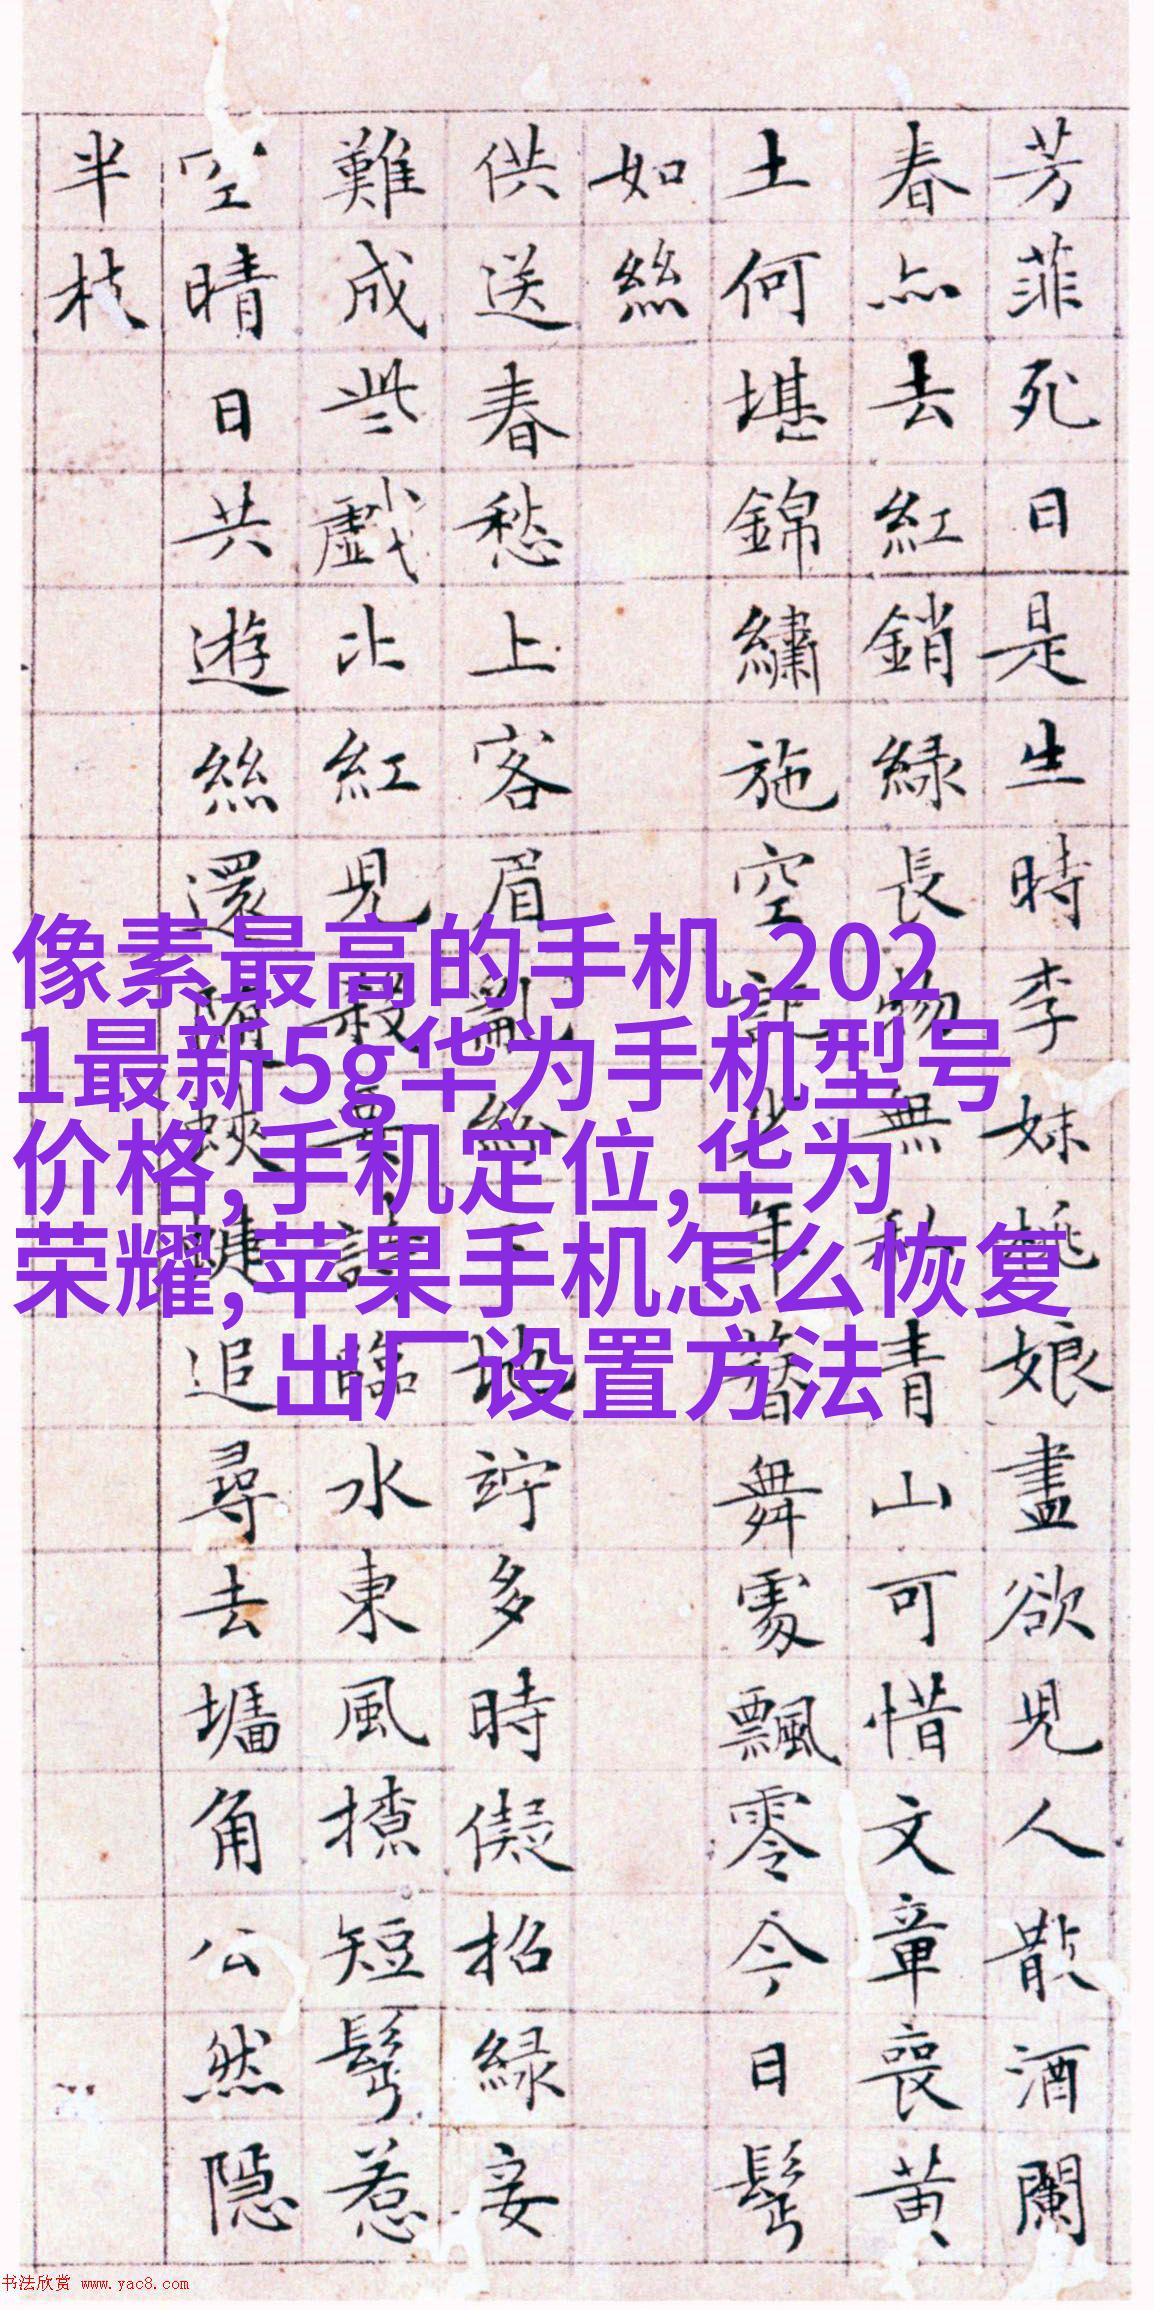 芳菲死日是生時李妹桃娘盡欲兒人散酒闌
春亦去紅銷綠長物無私青山可惜文章喪黃
土何堪錦繡施空記少年簪舞處飄零今日鬢
如絲
供送春愁上客眉亂紛紛地竚多時儗招綠妾
難成些戲比紅兒要詩臨水東風撩短鬢惹
空晴日共遊絲還隨蛺蝶追尋去墻角公然隱
半枝
像素最高的手机,202
1最新5g华为手机型号
价格,手机定位,华为
荣耀,苹果手机怎么恢复
出厂设置方法
书法欣赏 www.yac8.com